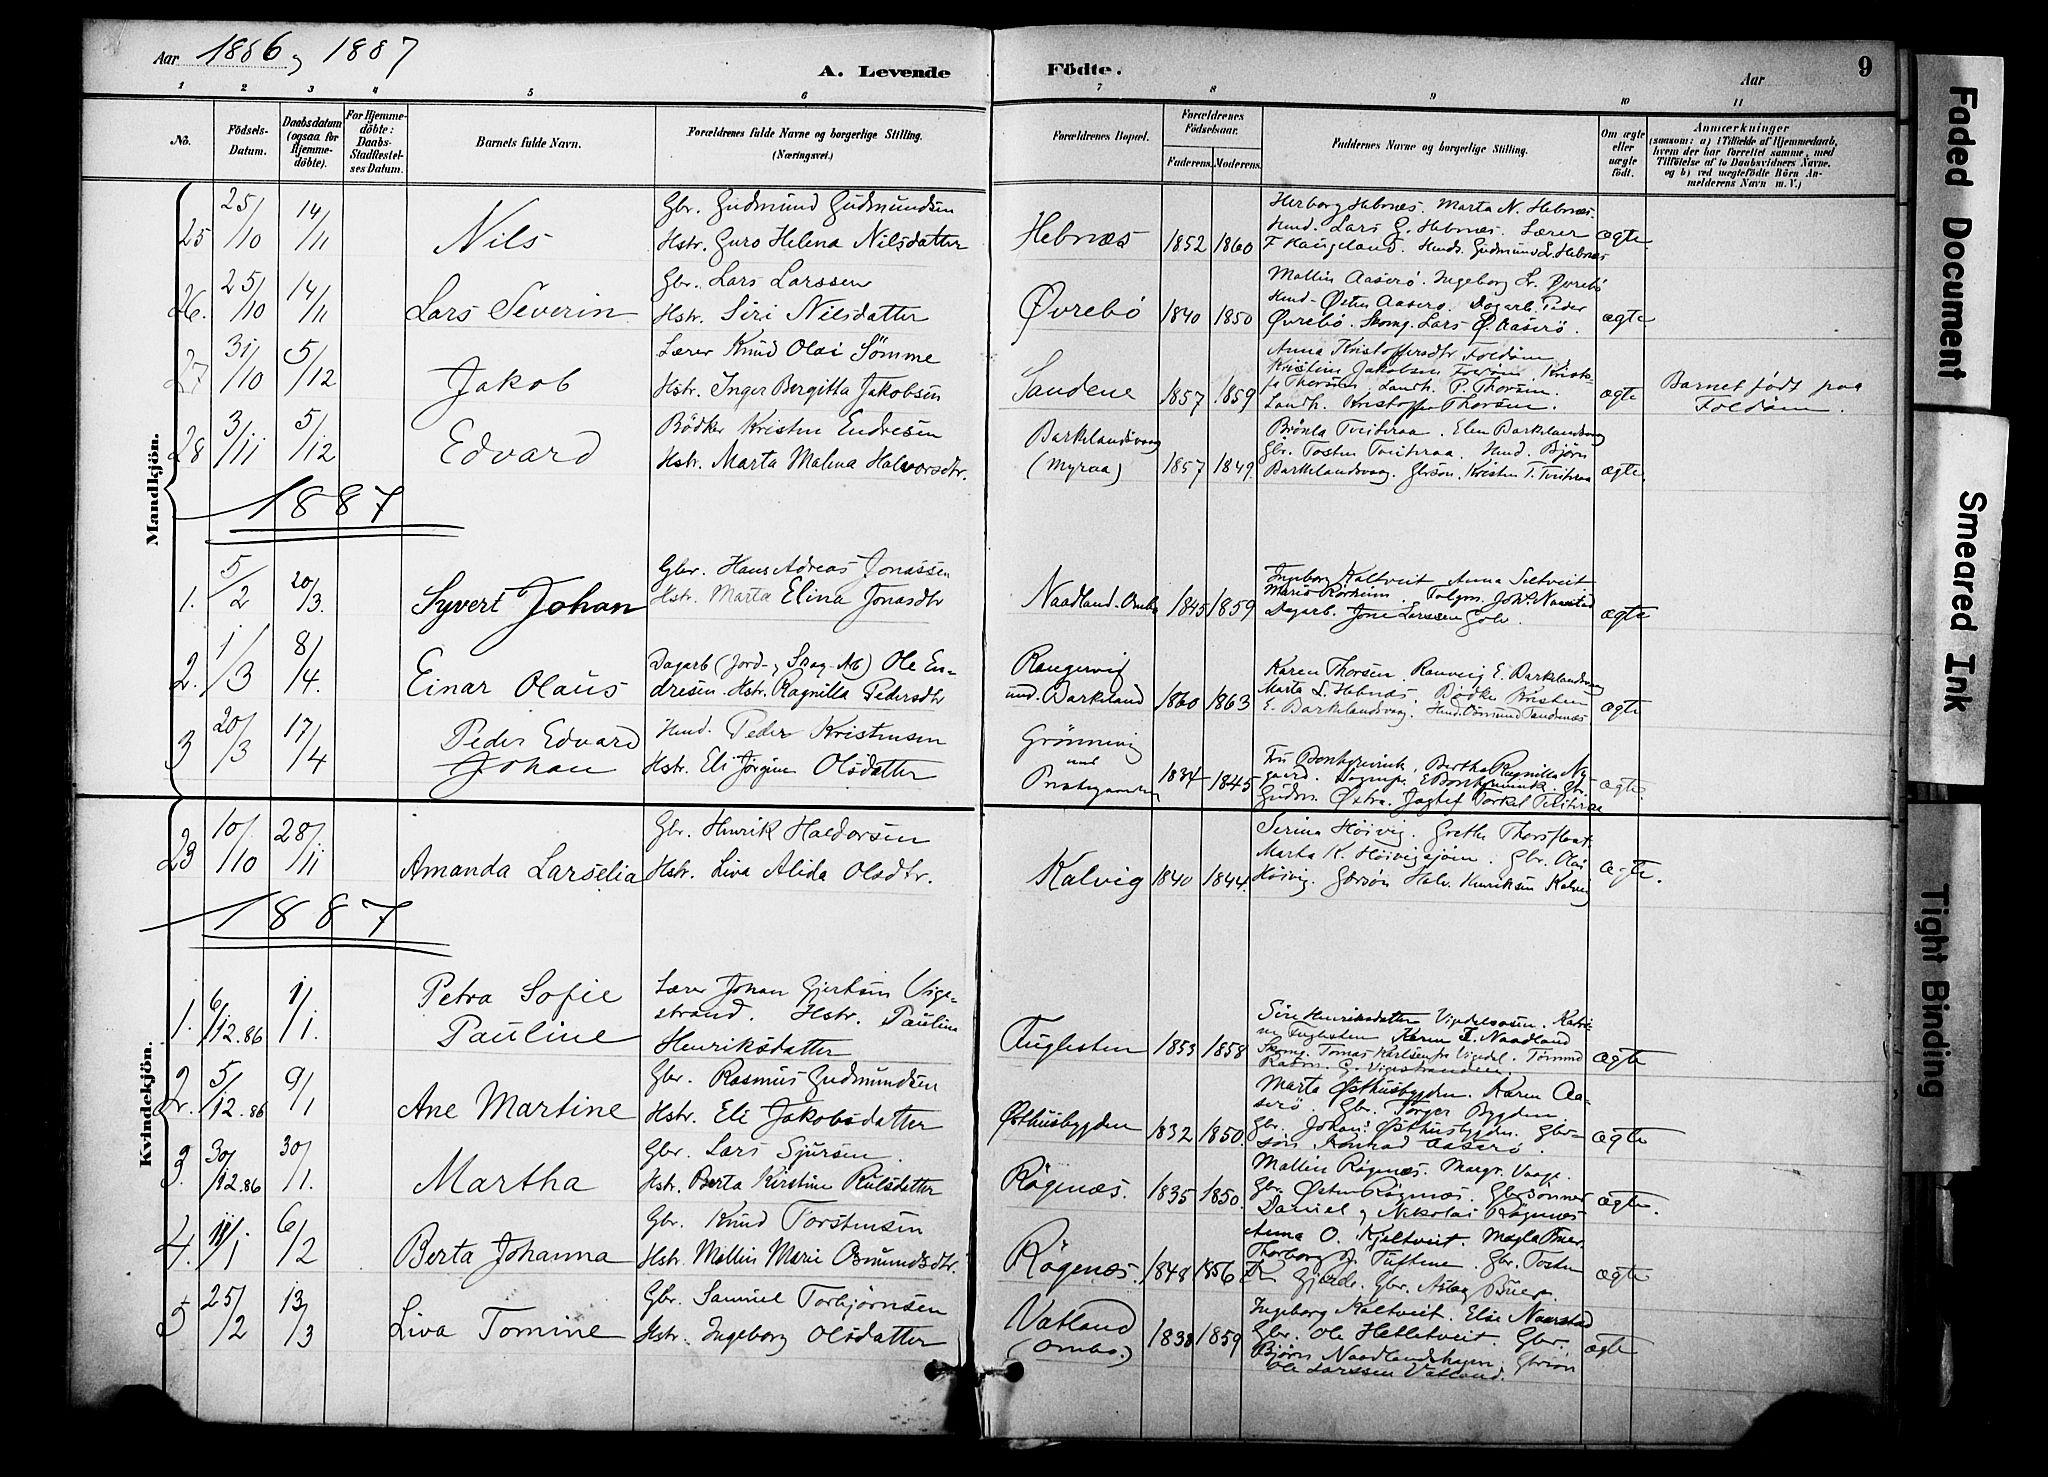 Aar 1886 og 1887
A. Levende Födte.
Aar
9
1 2 3 4 5 6 7 8 9 10 11
No.
Födsels-Datum.
Daabsdatum (ogsaa for Hjemme-döbte).
For Hjemme-döbte: Daabs-Stadfæstel-ses Datum.
Barnets fulde Navn.
Forældrenes fulde Navne og borgerlige Stilling.
(Næringsvei.)
Forældrenes Bopæl.
Forældrenes Födselsaar.
Faderens. Moderens.
Faddernes Navne og borgerlige Stilling.
Om ægte eller uægte födt.
Anmærkninger
(saasom: a) i Tilfælde af Hjemmedaab,
hvem der har forrettet samme, med
Tilföielse af to Daabsvidners Navne,
og b) ved uægtefödte Börn An-
melderens Navn m. V.)
Mandkjön.
25 25/10 14/11 Nils
Gbr. Gudmund Gudmundsen
Hstr. Guro Helena Nilsdatter
Hebnæs 1852 1860
Herborg Hebnæs. Marta N. Hebnæs.
Umd. Lars G. Hebnæs. Lærer
F Haugeland. Umds. Gudmund L. Hebnæs
ægte
26. 25/10 14/11 Lars Severin
Gbr. Lars Larssen
Hstr. Siri Nilsdatter
Øvrebö 1840 1850
Mallin Aaserö. Ingeborg L. Øvrebö
Umd. Østen Aaserö. Dagarb. Peder
Øvrebö. Skomg. Lars Ø. Aaserö.
ægte
27 31/10 5/12 Jakob
Lærer Knud Olai Sömme
Hstr. Inger Bergitta Jakobsen
Sandene 1857 1859
Anna Kristoffersdtr Foldöen
Kristine Jakobsen
Thorsen. Landh. P. Thorsen.
Landh. Kristoffer Thorsen.
ægte
Barnet födt paa
Foldöen.
28 3/11 5/12 Edvard
Bödker Kristen Endresen
Hstr. Marta Malena Halvorsdtr.
Barkelandsvaag
(Myraa) 1857 1849.
Brönla Tveiteraa. Elen Barkelandsvaag
Gbr. Tosten Tveiteraa. Umd. Björn
Barkelandsvaag. Gbrsön. Kristen T. Tveiteraa
ægte.
1887
1. 5/2 20/3. Syvert Johan
Gbr. Hans Adreas Jonassen
Hstr. Marta Elina Jonasdtr
Naadland. Ombo 1845 1859
Ingeborg Kaltveit Anna Seltveit
Maria Rörheim. Joh. Naarstad
Dagarb. Jone Larssen
ægte
2. 1/3 8/4. Einar Olaus
Dagarb (Jord- og Skog-Arb) Ole En-
dresen. Hstr. Ragnilla Pedersdtr
und. Barkeland 1860 1863
Karen Thorsen. Ranveig E. Barkelandsvaag
Marta L. Hebnæs. Bödker Kristen
E. Barkelandsvaag. Umd. Osmund Sandenæs
ægte
3 20/3 17/4 Peder Edvard
Johan
Umd. Peder Kristensen
Hstr. Eli Jörgine Olsdatter
Grönnevig
und
Prestegaarden 1834 1845
Torkel Tveiteraa
ægte.
Kvindekjön.
23 10/10 28/11 Amanda Larselia
Gbr. Henrik Haldorsen
Hstr. Liva Alida Olsdtr.
Kalvig 1840 1844.
Serina Höivig. Grethe Thorsflaat.
Marta K. Höivigsjöen. Gbr. Olai
Höivig. Gbrsön Halv. Henriksen Kalvig
ægte.
1887
1. 6/12.86 1/1. Petra Sofie
Pauline
Lærer Johan Gjertsen Vige-
strand. Hstr. Pauline
Henriksdatter
Fuglesten 1853 1858
Siri Henriksdatter Vigdelsosen. Katri-
ne Fuglesten Karen T. Naadland
Skomg. Tomas Karlsen fra Vigdel. Törmod
G. Vigestranden.
ægte
2. 5/12.86 9/1 Ane Martine
Gbr. Rasmus Gudmundsen
Hstr. Eli Jakobsdatter
Østhusbygden 1832 1850.
Marta Østhusbygden. Karen Aa-
serö. Gbr. Torger Bygden.
Gbr. Johan Østhusbygden. Gbr-
sön. Konrad Aaserö.
ægte
3. 30/12.86 30/1. Martha
Gbr. Lars Sjursen.
Hstr. Berta Kirstine Rulsdatter
Rögenæs. 1835 1850.
Mallin Rögenæs. Margr. Vaage.
Gbr. Østen Rögenæs. Gbrsönner
Daniel og Nikolai Rögenæs
ægte.
4. 11/1 6/2 Berta Johanna
Gbr. Knud Torstensen
Hstr. Mallin Marie Osmundsdtr.
Rögenæs. 1848 1856
Anna O. Kjeltveit. Magla Buer.
Thorborg J. Tuftene. Gbr. Tosten
Gjerde. Gbr. Aslag Buer.
ægte
5 25/2 13/3 Liva Tomine
Gbr. Samuel Torbjörnsen
Hstr. Ingeborg Olsdatter
Vatland
(Ombo.) 1838 1859
Ingeborg Kaltveit. Elsa Naarstad
Gbr. Ole Hetletveit. Gbr.
Björn Naadlandshagen, Gbrsön
Ole Larssen Vatland.
ægte
Faded Document
Smeared Ink
Tight Binding